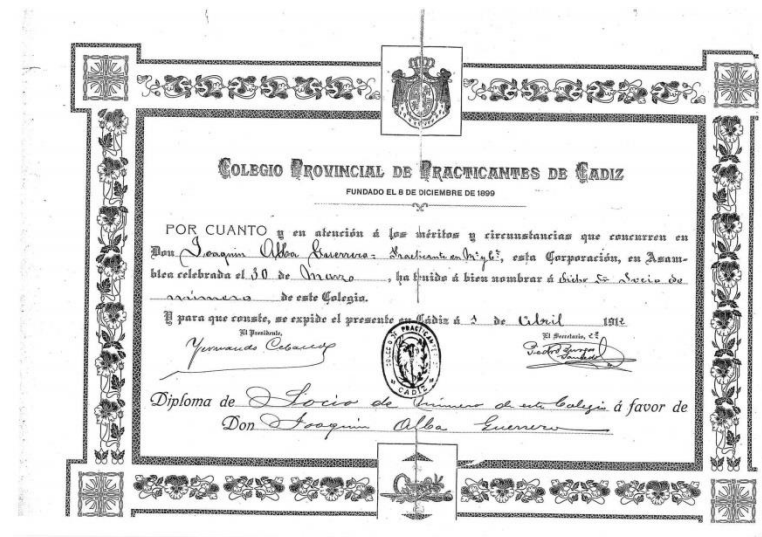 COLEGIO PROVINCIAL DE PRACTICANTES DE CADIZ
FUNDADO EL 8 DE DICIEMBRE DE 1899
POR CUANTO y en atención á los méritos y circunstancias que concurren en
Don Joaquin Alba Guerrero = Practicante en Mª y Cª, esta Corporación, en Asam-
blea celebrada el 30 de Marzo, ha tenido á bien nombrar á dicho Sr. Socio de
número de este Colegio.
Y para que conste, se expide el presente en Cádiz á 3 de Abril 1912
El Presidente,
El Secretario,
Pedro
COLEGIO DE PRACTICANTES
CADIZ
Diploma de Socio de número de este Colegio á favor de
Don Joaquin Alba Guerrero